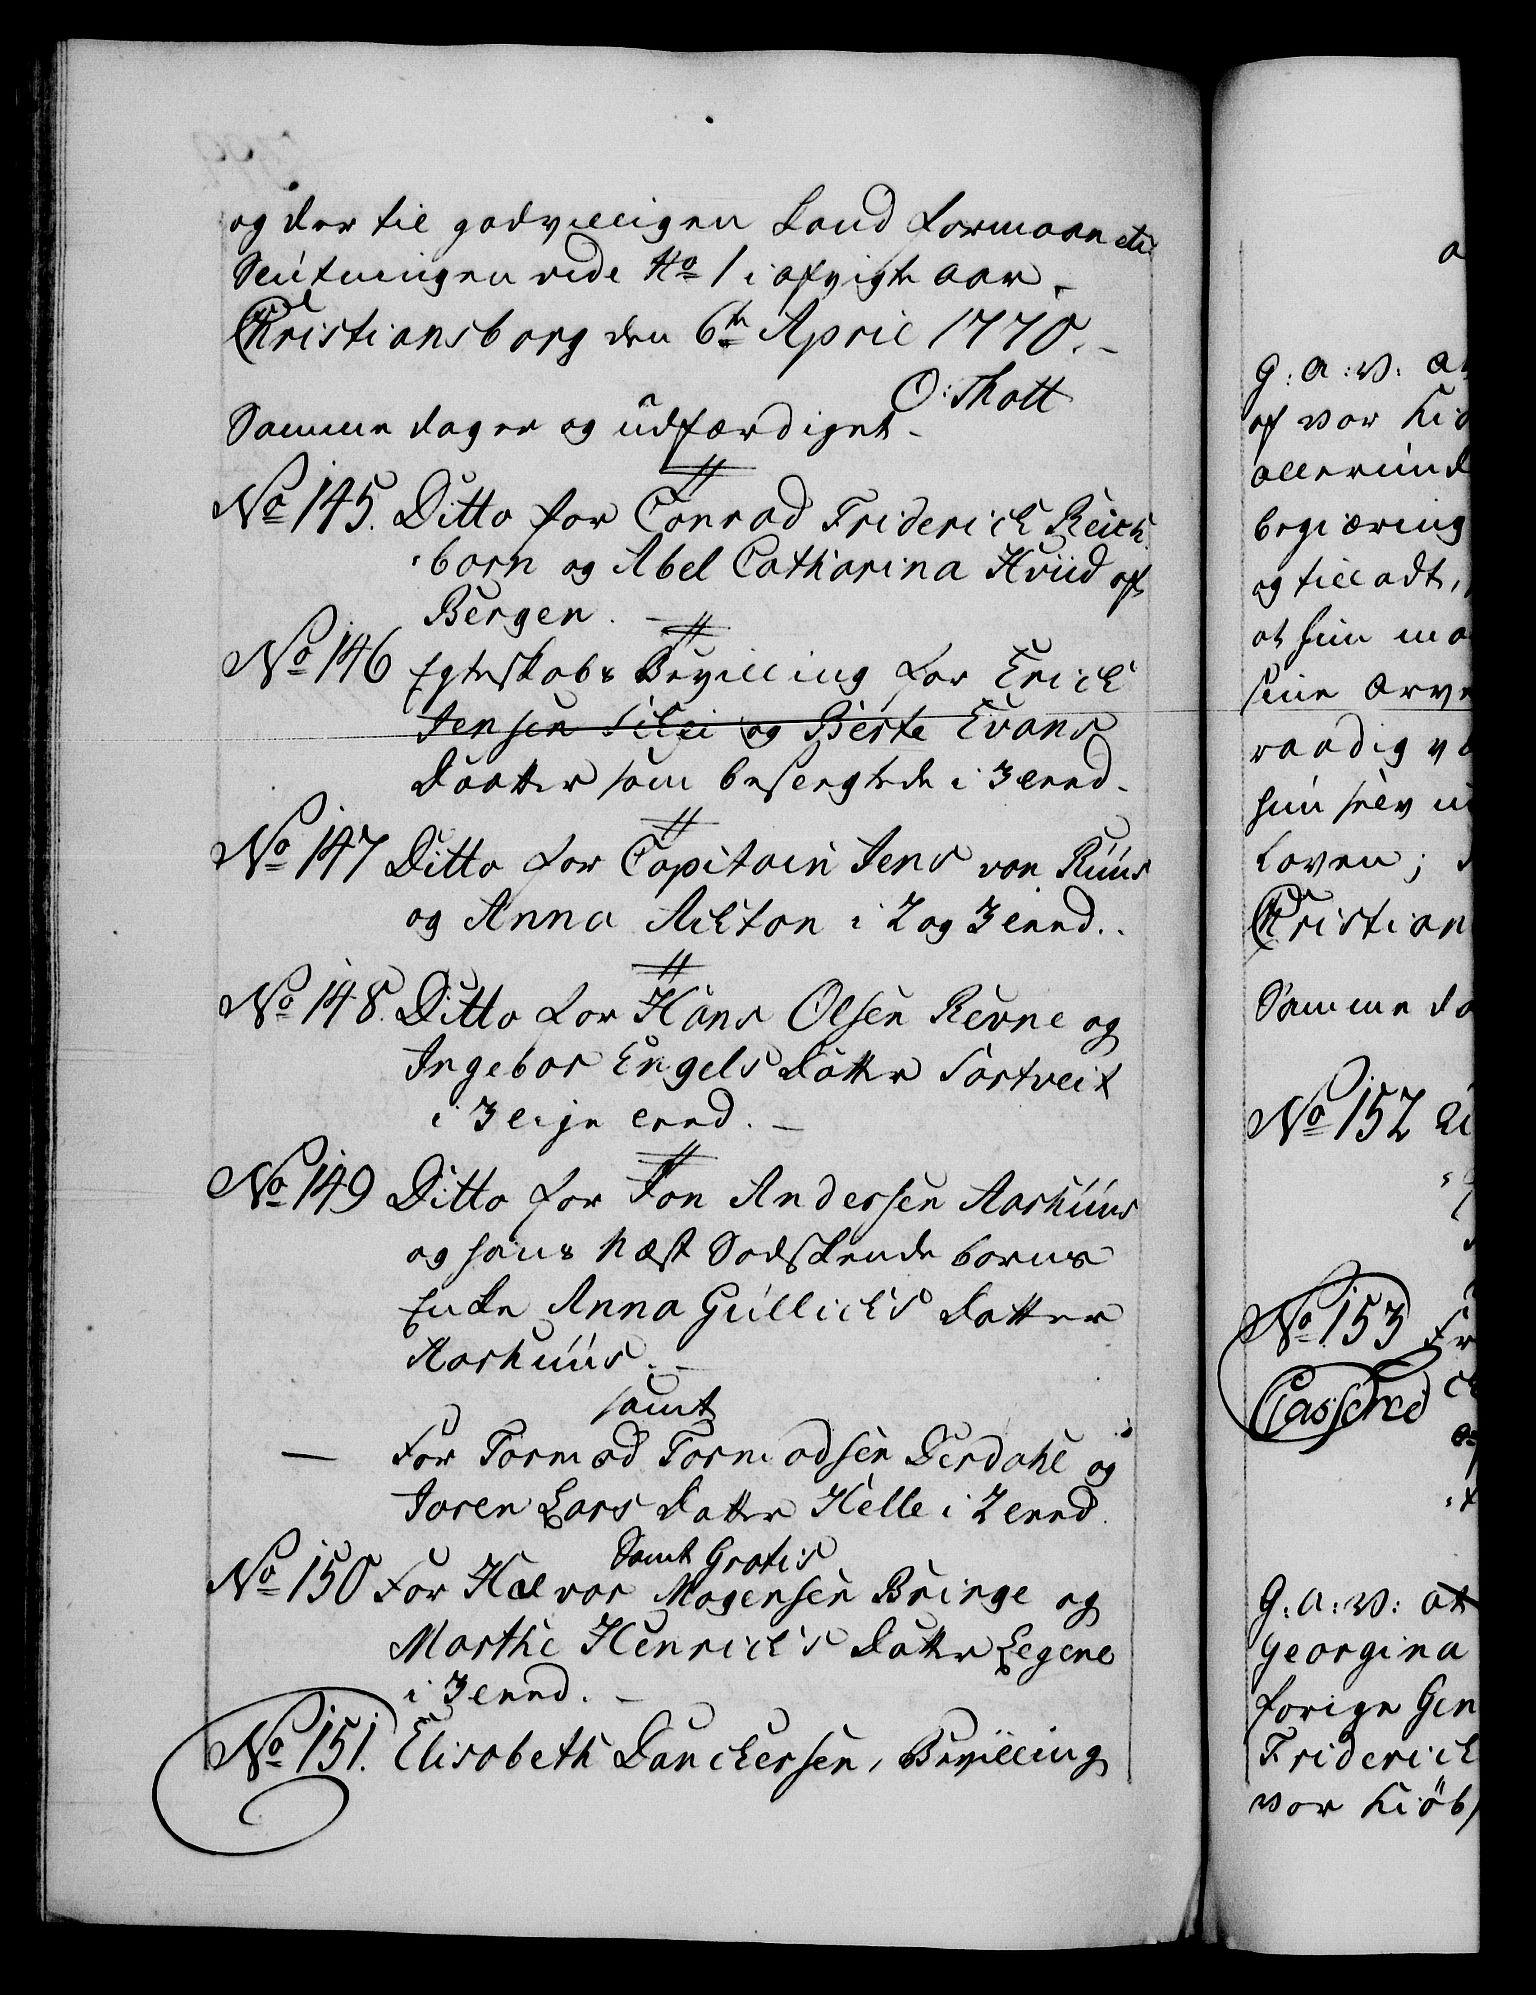 og der til godvilligen Land formaae etc.
Slutningen vide No 1 i afvigte aar.
Christiansborg den 6te April 1770.
O: Thott
Samme dager og udfærdiget.
No 145. Ditto for Conrad Friderich Reich
born og Abel Catharina Hviid af
Bergen.
No 146 Egteskabs Bevilling for Erich
Jensen Silei og Berte Evans
Daatter som besvogrede i 3 Leed.
No 147 Ditto for Capitain Jens von Ruus
og Anna Ackton i 2 og 3 Leed.
No 148. Ditto for Hans Olsen Revne og
Ingebor Engels Datter Sortveit
i 3 lige Leed.
No 149 Ditto for Jon Andersen Aarhuus
og hans Næst Sødskende barns
Enke Anna Gullich's Datter
Aarhuus.
samt
— For Tormod Tormodsen Derdahl og
Joren Lars Datter Helle i 2 Leed.
Samt Gratis
No 150 For Halvor Mogensen Bringe og
Marthe Henrich's Datter Legene
i 3 Leed.
No 151. Elisabeth Danchersen, Bevilling
G: A: V: at
af vor Kiø
allerund
begiæring
og tilladt,
at hun ma
sine arve
raadig v
hun selv u
Loven;
Christian
Samme da
No 152
No 153 Fr
Casseret
G: A: V: at
Georgina
forige Gen
Friderich
vor Kiøb